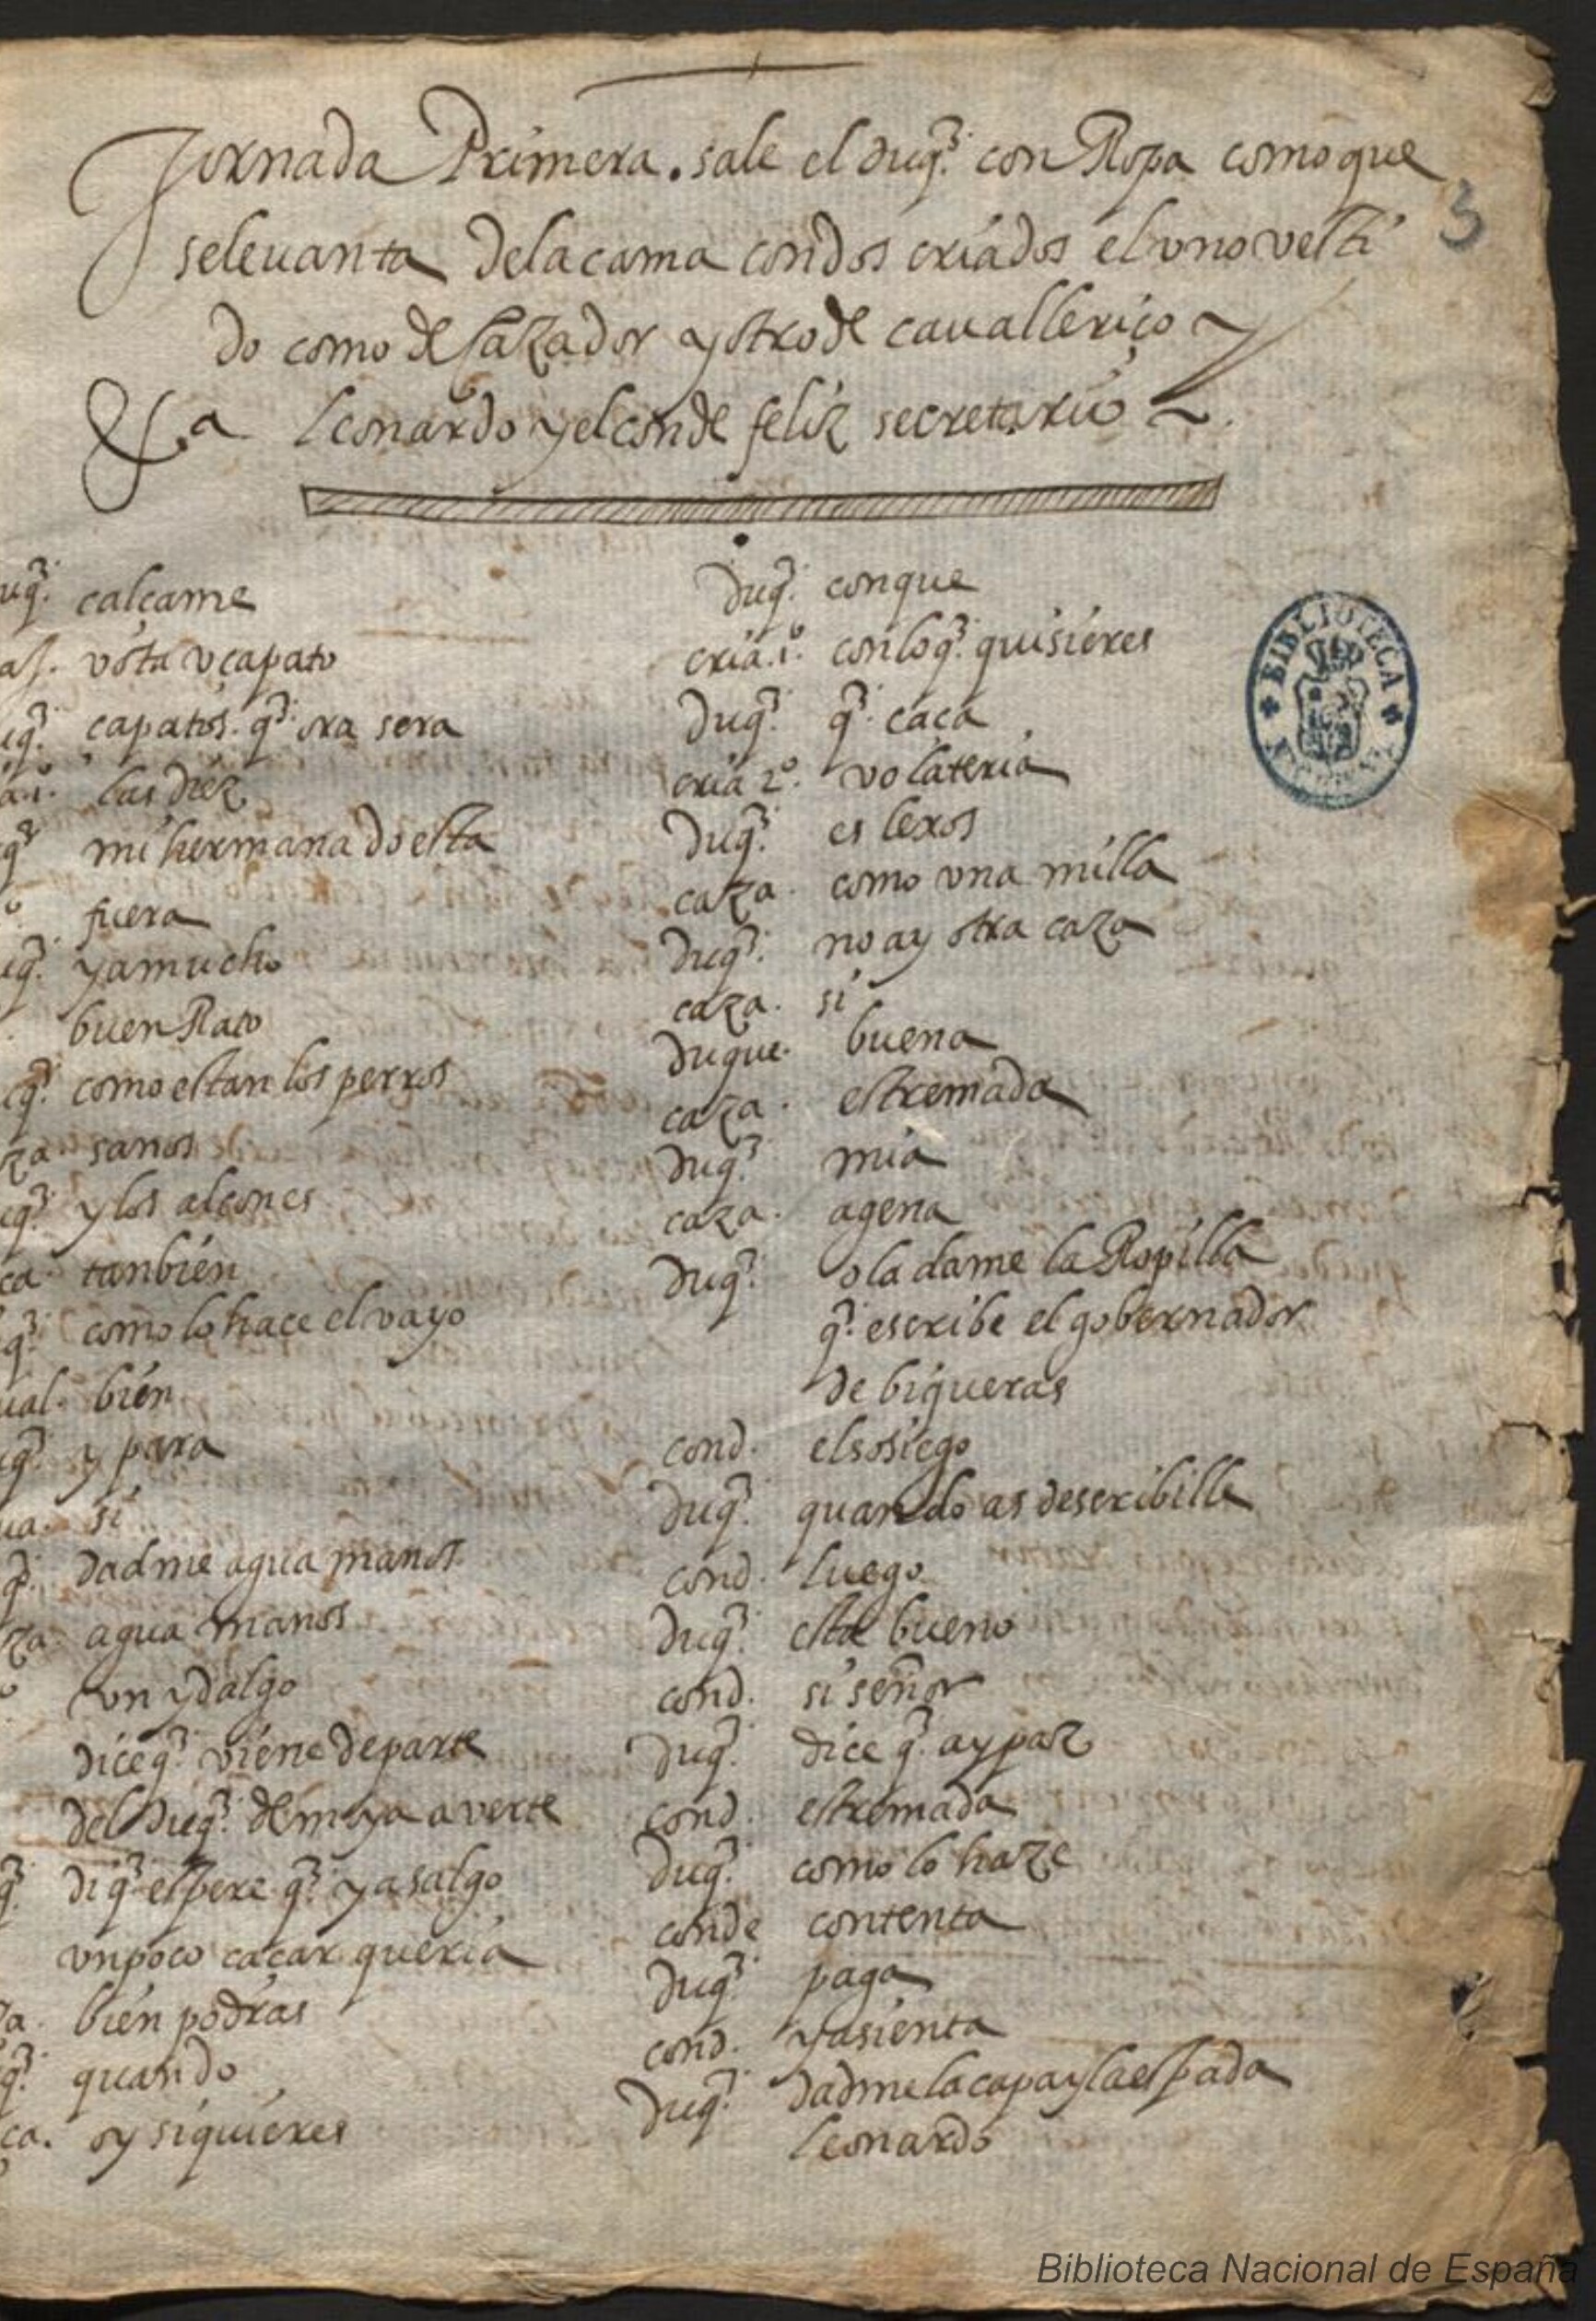 Jornada Primera. sale el duq̃. con Ropa como que
3
se leuanta de la cama con dos criados el vno vesti
do como de cazador y otro de cauallerico
&a Leonardo y el conde feliz secretario
uq̃. calçame
çapato
uq̃. çapatos. q̃. ora sera
a.1º. las diez
q̃ mi hermana do esta
º. fuera
uq̃. ya mucho
buen Rato
q̃. como estan los perros
za. sanos
uq̃. y los alcones
ca. tanbien
q̃. como lo hace el vayo
ual. bien
q̃. y para
ua. si
q̃. dadme agua manos
za. agua manos
º vn ydalgo
dice q̃. viene de parte
del duq̃. de moya a verte
q̃. di q̃ espere q̃. ya salgo
vn poco caçar queria
za. bien podras
q̃. quando
ca. oy si quieres
duq̃. con que
cria.1º. con lo q̃. quisieres
duq̃. q̃. caça
cria 2º. volateria
duq̃. es lexos
caza. como vna milla
duq̃. no ay otra caza
caza. si
duque. buena
caza. estremada
duq̃. mia
caza. agena
duq̃. ola dame la Ropilla
q̃. escribe el gobernador
de bigueras
cond. el sosiego
duq̃. quando as de scribille
cond. luego
duq̃. esta bueno
cond. si señor
duq̃. dice q̃. ay paz
cond. estremada
duq̃. como lo haze
conde contenta
duq̃ paga
cond. y asienta
duq̃. dadme la capa y la espada
leonardo
BIBLIOTECA NACIONAL
Biblioteca Nacional de España